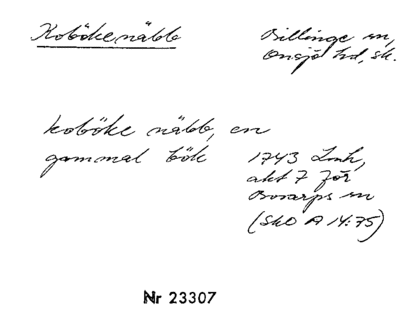 Koböke näbb
Billinge sn,
Onsjö hd, sk.
koböke näbb, en
gammal bök
1743 Lmh,
akt 7 för
Bosarps sn
(SkO A 14:75)
Nr 23307